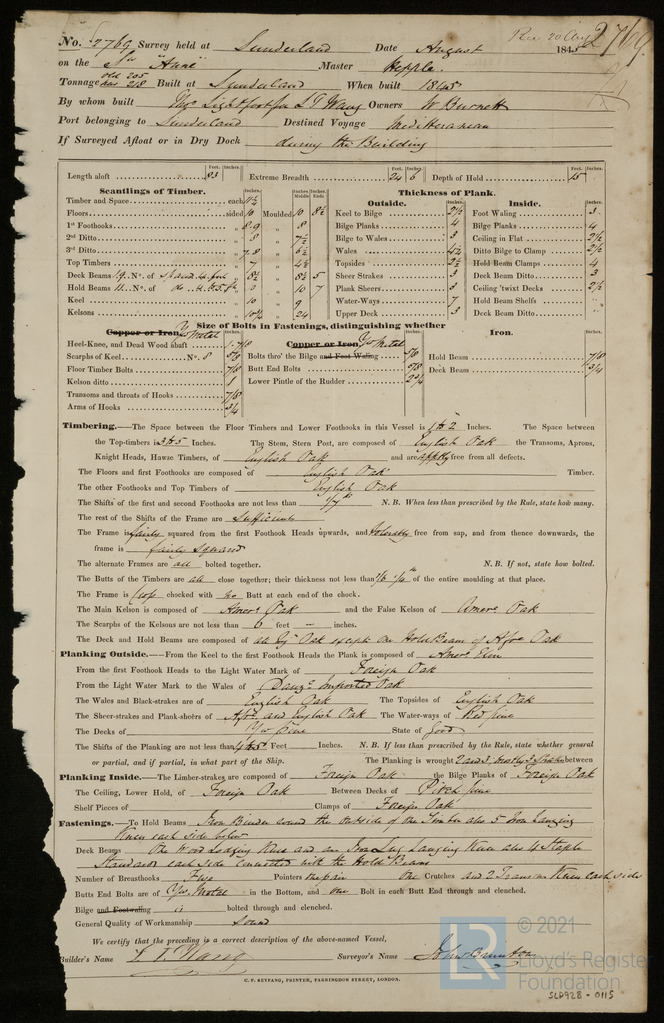 No. 2769 Survey held at Sunderland Date August 1845 Rec 20 Aug 2769
on the "Anne" Master Hepple
Tonnage old 205 new 218 Built at Sunderland When built 1845
By whom built Owners W Burnett
Port belonging to Sunderland Destined Voyage Mediteranean
If Surveyed Afloat or in Dry Dock during the Building
Feet. Inches. Feet. Inches. Feet. Inches.
Length aloft 83 Extreme Breadth 24 6 Depth of Hold 15
Scantlings of Timber. Inches. Inches. Middle Inches. Ends
Timber and Space each 11¼
Floors sided 10 Moulded 10 8½
1st Foothooks 8.9 " 8
2nd Ditto 8 " 7½
3rd Ditto 7.8 " 6½
Top Timbers 7 " 4½
Deck Beams 19 No. of 8½ " 8½ 5
Hold Beams 11 No. of do " 10 7
Keel 10 " 9
Kelsons 10¼ " 24
Thickness of Plank.
Outside. Inches.
Keel to Bilge 2½
Bilge Planks 4
Bilge to Wales 3
Wales 4½
Topsides 2½
Sheer Strakes 3
Plank Sheers 3
Water-Ways 7
Upper Deck 3
Inside. Inches.
Foot Waling 3
Bilge Planks 4
Ceiling in Flat 2½
Ditto Bilge to Clamp 2½
Hold Beam Clamps 4
Deck Beam Ditto 3
Ceiling 'twixt Decks 2½
Hold Beam Shelfs "
Deck Beam Ditto "
Size of Bolts in Fastenings, distinguishing whether
Copper or Iron. Yw Metal Inches.
Heel-Knee, and Dead Wood abaft 1.7/8
Scarphs of Keel No. 8 5/8
Floor Timber Bolts 7/8
Kelson ditto 1
Transoms and throats of Hooks 7/8
Arms of Hooks 3/4
Copper or Iron Yw Metal Inches.
Bolts thro' the Bilge and Foot Waling 5/8
Butt End Bolts 5/8
Lower Pintle of the Rudder 2¾
Iron. Inches.
Hold Beam 7/8
Deck Beam 3/4
Timbering.—The Space between the Floor Timbers and Lower Foothooks in this Vessel is 1 to 2 Inches. The Space between
the Top-timbers is 3 to 5 Inches. The Stem, Stern Post, are composed of English Oak the Transoms, Aprons,
Knight Heads, Hawse Timbers, of English Oak and are free from all defects.
The Floors and first Foothooks are composed of English Oak Timber.
The other Foothooks and Top Timbers of English Oak
The Shifts of the first and second Foothooks are not less than 1/7th N. B. When less than prescribed by the Rule, state how many.
The rest of the Shifts of the Frame are Sufficient
The Frame is fairly squared from the first Foothook Heads upwards, and tolerably free from sap, and from thence downwards, the
frame is fairly squared
The alternate Frames are all bolted together. N. B. If not, state how bolted.
The Butts of the Timbers are all close together; their thickness not less than of the entire moulding at that place.
The Frame is chocked with no Butt at each end of the chock.
The Main Kelson is composed of Amern Oak and the False Kelson of Amern Oak
The Scarphs of the Kelsons are not less than 6 feet — inches.
The Deck and Hold Beams are composed of all Eng Oak except one Hold Beam of Afrn Oak
Planking Outside.—From the Keel to the first Foothook Heads the Plank is composed of Amern Elm
From the first Foothook Heads to the Light Water Mark of Foreign Oak
From the Light Water Mark to the Wales of Danzc Imported Oak
The Wales and Black-strakes are of English Oak The Topsides of English Oak
The Sheer-strakes and Plank-sheers of Afrn and English Oak The Water-ways of Red Pine
The Decks of Yw Pine State of Good
The Shifts of the Planking are not less than 4 to 5 Feet Inches. N. B. If less than prescribed by the Rule, state whether general
or partial, and if partial, in what part of the Ship. The Planking is wrought 2 and 3 mostly 3 Strakes between
Planking Inside.—The Limber-strakes are composed of Foreign Oak the Bilge Planks of Foreign Oak
The Ceiling, Lower Hold, of Foreign Oak Between Decks of Pitch Pine
Shelf Pieces of Clamps of Foreign Oak
Fastenings.—To Hold Beams Iron Binder round the Outside of the Timber also 5 Iron Hanging
Knees each side below
Deck Beams One Wood Lodging Knee and an Iron Lug Hanging Knee also 4 Staple
Standards each side connected with the Hold Beams
Number of Breasthooks Five Pointers One Crutches and 2 Transom Knees each side
Butts End Bolts are of Yw Metal in the Bottom, and one Bolt in each Butt End through and clenched.
Bilge and Footwaling bolted through and clenched.
General Quality of Workmanship Sound
We certify that the preceding is a correct description of the above-named Vessel,
Builder's Name Surveyor's Name John Brunton
C. F. SEYFANG, PRINTER, FARRINGDON STREET, LONDON.
LR © 2021
Lloyd's Register
Foundation
SLD928-0115